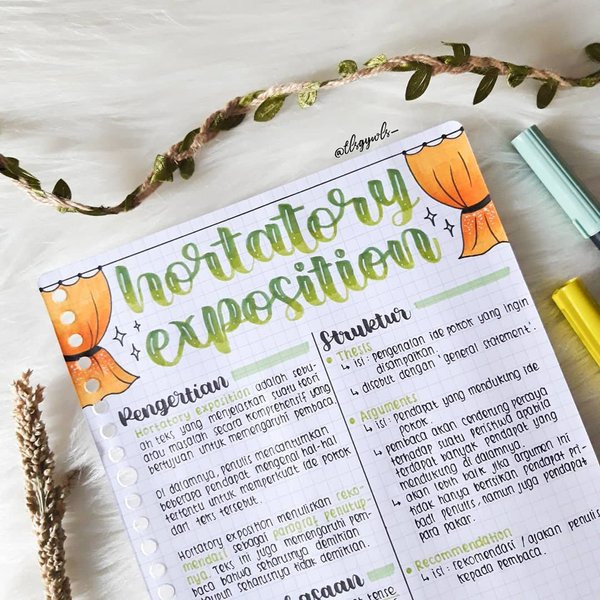 @tlsgywls_
hortatory
exposition
Pengertian
Hortatory exposition adalah sebu-
ah teks yang menjelaskan suatu teori
atau masalah secara komprehensif yang
bertujuan untuk memengaruhi pembaca.
Di dalamnya, penulis mencantumkan
beberapa pendapat mengenai hal-hal
tertentu untuk memperkuat ide pokok
dari teks tersebut.
Hortatory exposition menuliskan reko-
mendasi sebagai paragraf penutup-
nya. Teks ini juga memengaruhi pem-
baca bahwa seharusnya demikian
ataupun seharusnya tidak demikian.
Struktur
Thesis
↳ isi : pengenalan ide pokok yang ingin
disampaikan.
↳ disebut dengan 'general statement'.
Arguments
↳ isi : pendapat yang mendukung ide
pokok.
↳ pembaca akan cenderung percaya
terhadap suatu peristiwa apabila
terdapat banyak pendapat yang
mendukung di dalamnya.
↳ akan lebih baik jika argumen ini
tidak hanya berisikan pendapat pri-
badi penulis, namun juga pendapat
para pakar.
Recommendation
↳ isi : rekomendasi / ajakan penulis
kepada pembaca.